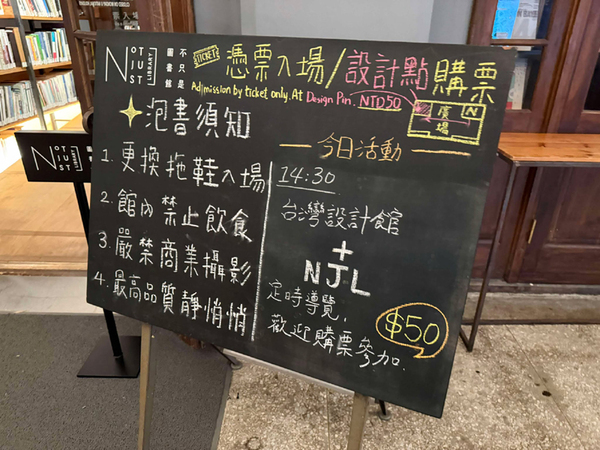 NOT JUST LIBRARY
不只是圖書館
TICKET
憑票入場/設計點購票
Admission by ticket only. At Design Pin. NTD50
廣場
N
泡書須知
1. 更換拖鞋入場
2. 館內禁止飲食
3. 嚴禁商業攝影
4. 最高品質靜悄悄
今日活動
14:30
台灣設計館
+
NJL
定時導覽,
歡迎購票參加.
$50
NOT JUST LIBRARY